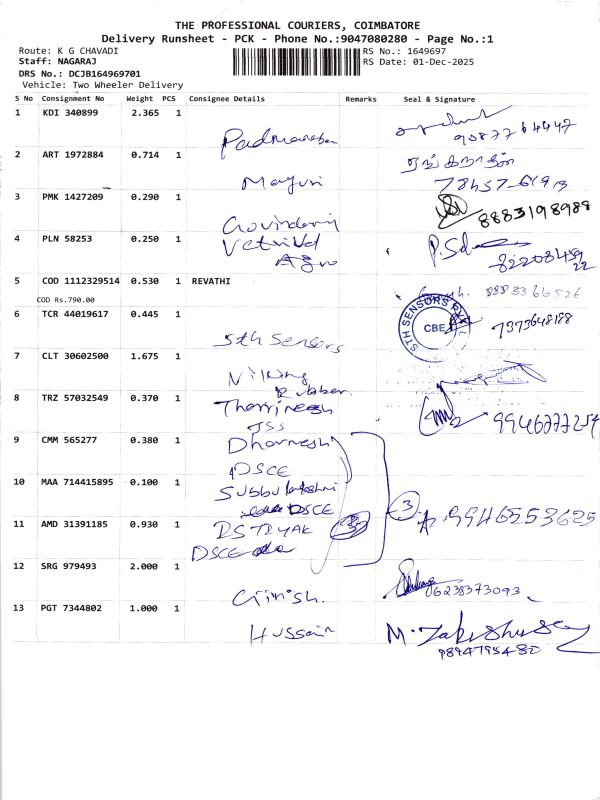 THE PROFESSIONAL COURIERS, COIMBATORE
Delivery Runsheet - PCK - Phone No.:9047080280 - Page No.:1
Route: K G CHAVADI
RS No.: 1649697
Staff: NAGARAJ
RS Date: 01-Dec-2025
DRS No.: DCJB164969701
Vehicle: Two Wheeler Delivery
S No Consignment No Weight PCS Consignee Details Remarks Seal & Signature
1 KDI 340899 2.365 1
2 ART 1972884 0.714 1
Mayuri
3 PMK 1427209 0.290 1
8883198988
4 PLN 58253 0.250 1
Vetrivel
Agro
5 COD 1112329514 0.530 1 REVATHI
8883366526
COD Rs.790.00
6 TCR 44019617 0.445 1
STH SENSORS
CBE
7373648188
Sth Sensors
7 CLT 30602500 1.675 1
Viking
Rubber
8 TRZ 57032549 0.370 1
JSS
9 CMM 565277 0.380 1
Dharnesh
DSCE
10 MAA 714415895 0.100 1
Subbulakshmi
DSCE
3
9946553625
11 AMD 31391185 0.930 1
DSCE
12 SRG 979493 2.000 1
06238373093
Girish.
13 PGT 7344802 1.000 1
Hussain
9894795480